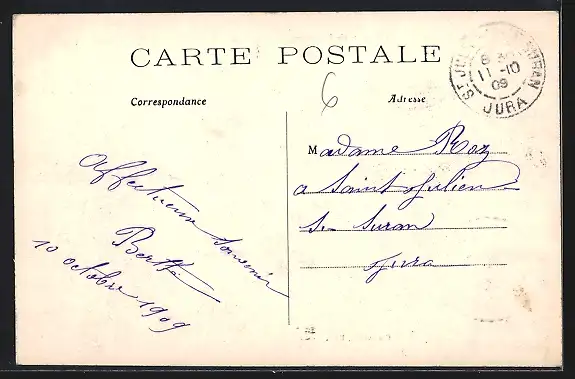 CARTE POSTALE
Correspondance
Adresse
6
ST JULIEN SUR SURAN
8 30
11 -10
09
JURA
Madame Roz
a Saint Julien
Sur Suran
Jura
Affectueux Souvenir
Berthe
10 octobre 1909